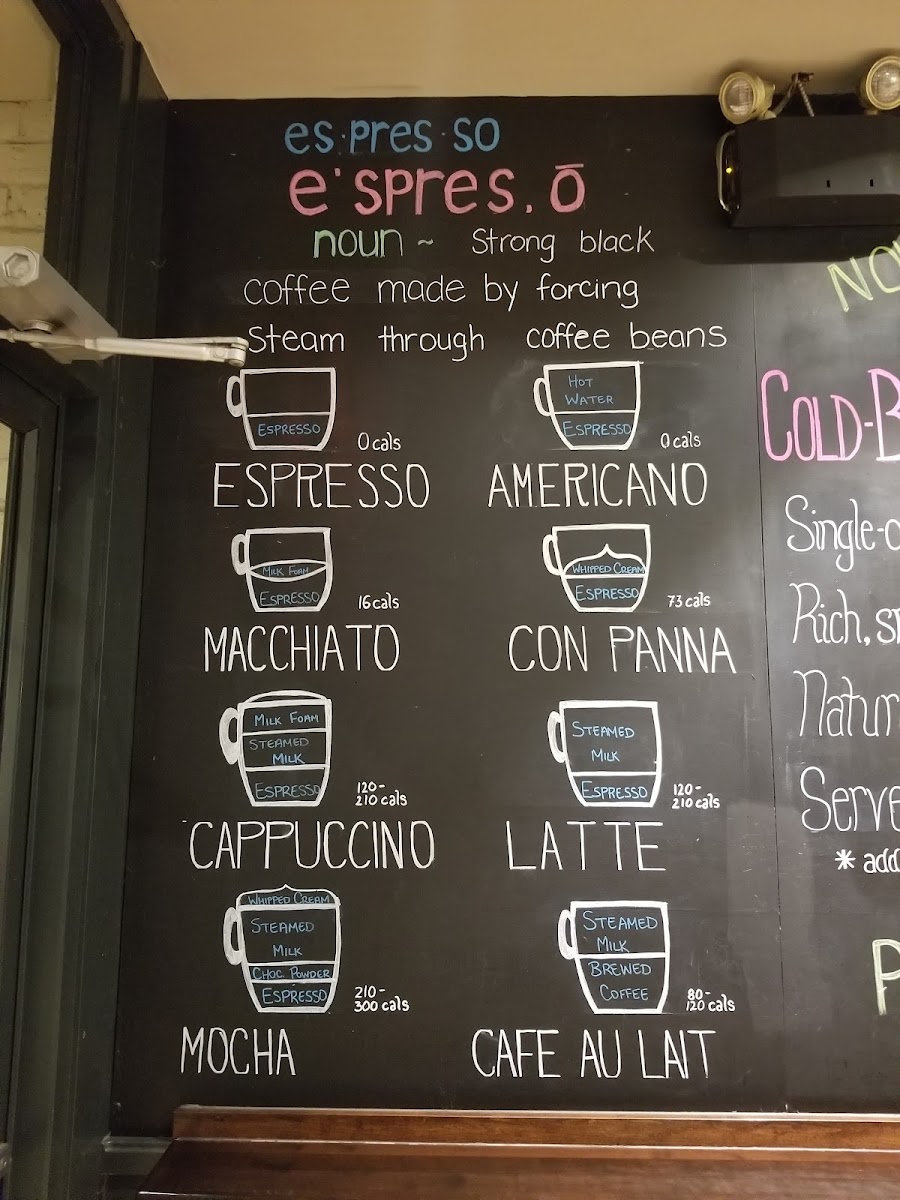 es·pres·so
e'spres,ō
noun ~ Strong black
coffee made by forcing
steam through coffee beans
ESPRESSO
0 cals
ESPRESSO
HOT
WATER
ESPRESSO
0 cals
AMERICANO
MILK FOAM
ESPRESSO
16 cals
MACCHIATO
WHIPPED CREAM
ESPRESSO
73 cals
CON PANNA
MILK FOAM
STEAMED
MILK
ESPRESSO
120-
210 cals
CAPPUCCINO
STEAMED
MILK
ESPRESSO
120-
210 cals
LATTE
WHIPPED CREAM
STEAMED
MILK
CHOC. POWDER
ESPRESSO
210-
300 cals
MOCHA
STEAMED
MILK
BREWED
COFFEE
80-
120 cals
CAFE AU LAIT
NO
COLD-B
Single-o
Rich, s
Natur
Serve
* add
P